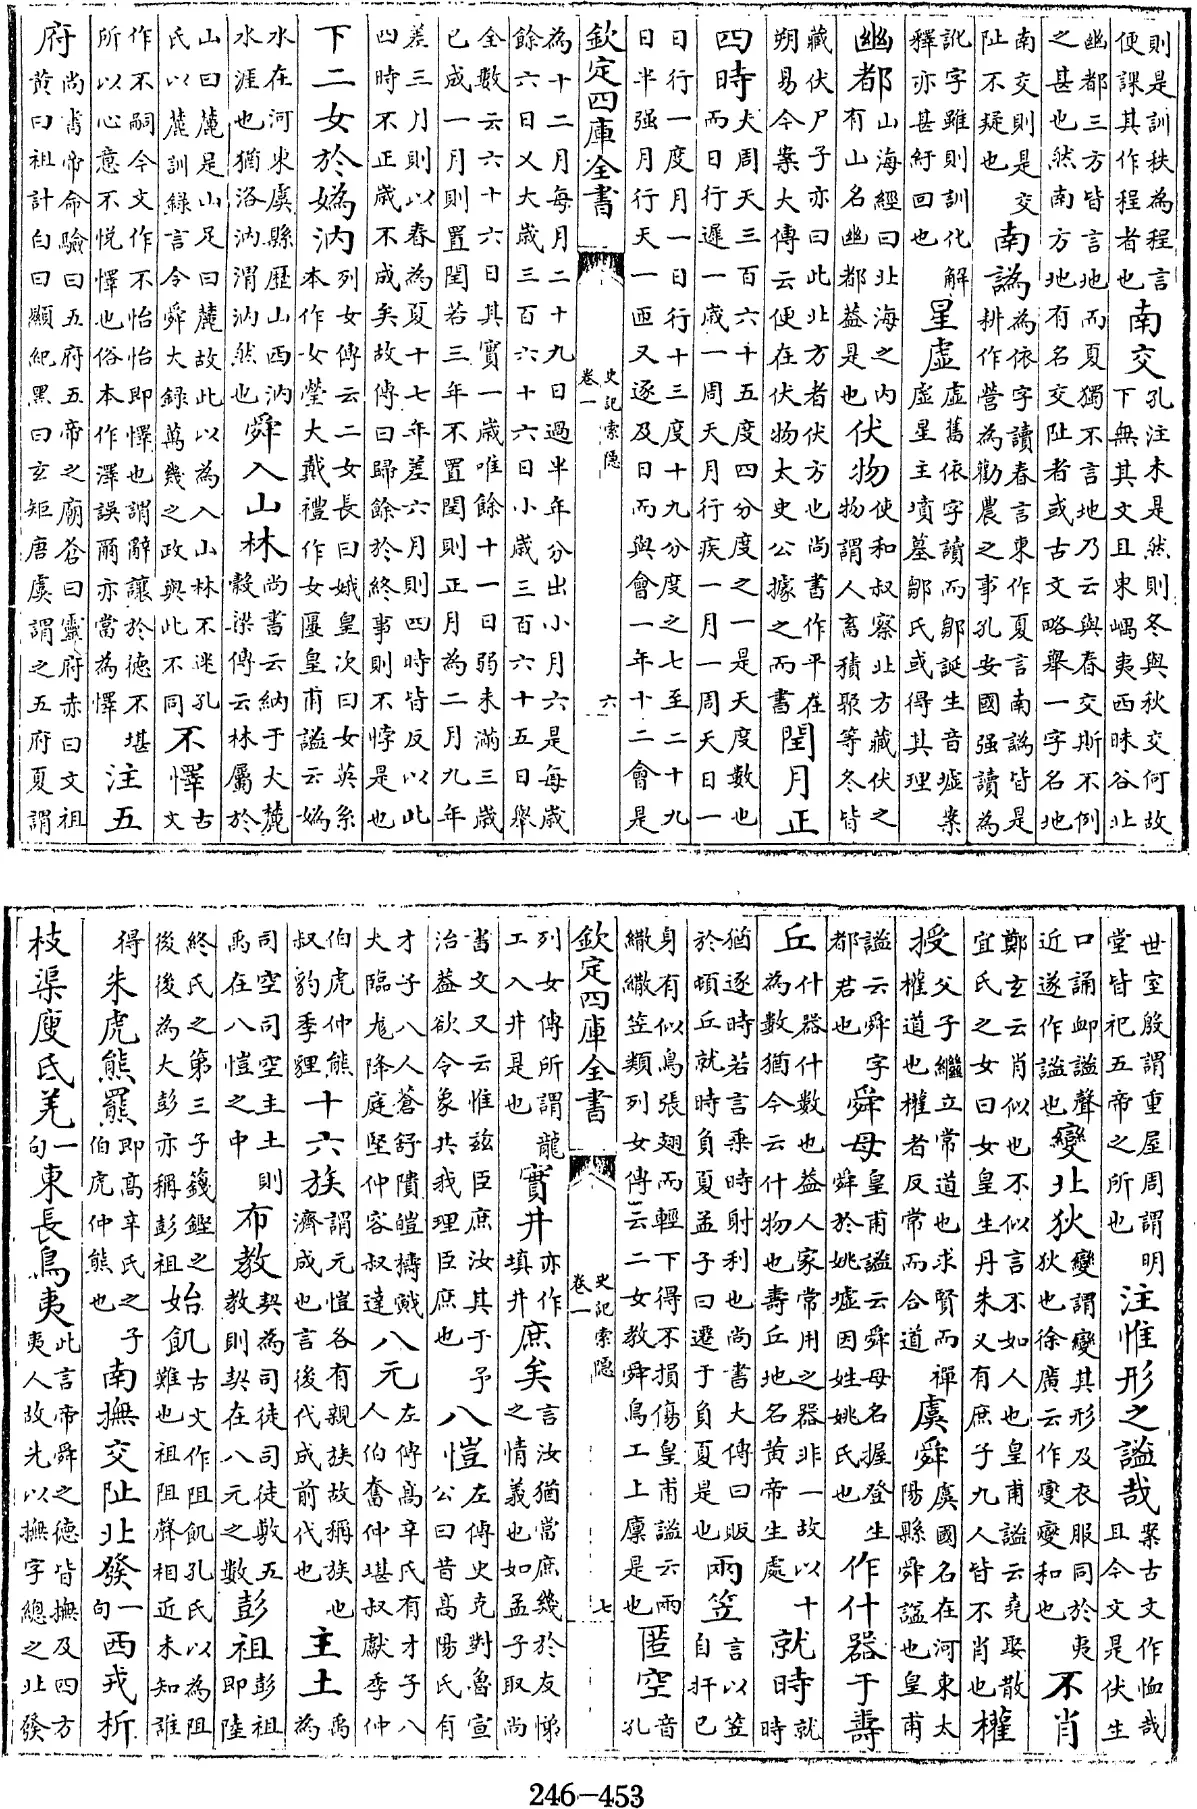 則是訓秩為程言便課其作程者也南交孔注未是然則冬與秋交何故下無其文且東嵎夷西昧谷北
幽都三方皆言地而夏獨不言地乃云與春交斯不例之甚也然南方地有名交阯者或古文略舉一字名地
南交則是交阯不疑也南譌為依字讀春言東作夏言南譌皆是耕作營為勸農之事孔安國强讀為
訛字雖則訓化解釋亦甚紆回也星虛虛舊依字讀而鄒誕生音墟案虛星主墳墓鄒氏或得其理
幽都山海經曰北海之內有山名幽都蓋是也伏物使和叔察北方藏伏之物謂人畜積聚等冬皆
藏伏尸子亦曰此北方者伏方也尚書作平在朔易今案大傳云便在伏物太史公據之而書閏月正
四時夫周天三百六十五度四分度之一是天度數也而日行遲一歲一周天月行疾一月一周天日一
日行一度月一日行十三度十九分度之七至二十九日半强月行天一匝又逐及日而與會一年十二會是
欽定四庫全書 史記索隱 卷一 六
為十二月每月二十九日過半年分出小月六是每歲餘六日又大歲三百六十六日小歲三百六十五日舉
全數云六十六日其實一歲唯餘十一日弱未滿三歲已成一月則置閏若三年不置閏則正月為二月九年
差三月則以春為夏十七年差六月則四時皆反以此四時不正歲不成矣故傳曰歸餘於終事則不悖是也
下二女於媯汭列女傳云二女長曰娥皇次曰女英系本作女瑩大戴禮作女匽皇甫謐云媯
水在河東虞縣歷山西汭水涯也猶洛汭渭汭然也舜入山林尚書云納于大麓穀梁傳云林屬於
山曰麓是山足曰麓故此以為入山林不迷孔氏以麓訓錄言令舜大錄萬幾之政與此不同不懌古文
作不嗣今文作不怡怡即懌也謂辭讓於德不堪所以心意不悦懌也俗本作澤誤爾亦當為懌注五
府尚書帝命驗曰五府五帝之廟蒼曰靈府赤曰文祖黃曰祖計白曰顯紀黑曰玄矩唐虞謂之五府夏謂
世室殷謂重屋周謂明堂皆祀五帝之所也注惟形之謐哉案古文作恤哉且今文是伏生
口誦卹謐聲近遂作謐也變北狄變謂變其形及衣服同於夷狄也徐廣云作變變和也不肖
鄭玄云肖似也不似言不如人也皇甫謐云堯娶散宜氏之女曰女皇生丹朱又有庶子九人皆不肖也權
授父子繼立常道也求賢而禪權道也權者反常而合道虞舜虞國名在河東太陽縣舜謚也皇甫
謐云舜字都君也舜母皇甫謐云舜母名握登生舜於姚墟因姓姚氏也作什器于壽
丘什器什數也蓋人家常用之器非一故以十為數猶今云什物也壽丘地名黃帝生處就時就時
猶逐時若言乘時射利也尚書大傳曰販於頓丘就時負夏孟子曰遷于負夏是也兩笠言以笠自扞己
身有似鳥張翅而輕下得不損傷皇甫謐云兩繖繖笠類列女傳云二女教舜鳥工上廩是也匿空音孔
欽定四庫全書 史記索隱 卷一 七
列女傳所謂龍工入井是也實井亦作填井庶矣言汝猶當庶幾於友悌之情義也如孟子取尚
書文又云惟茲臣庶汝其于予治益欲令象共我理臣庶也八愷左傳史克對魯宣公曰昔高陽氏有
才子八人蒼舒隤皚檮戭大臨尨降庭堅仲容叔達八元左傳高辛氏有才子八人伯奮仲堪叔獻季仲
伯虎仲熊叔豹季貍十六族謂元愷各有親族故稱族也濟成也言後代成前代也主土禹為
司空司空主土則禹在八愷之中布教契為司徒司徒敷五教則契在八元之數彭祖彭祖即陸
終氏之第三子籛鏗之後後為大彭亦稱彭祖始飢古文作阻飢孔氏以為阻難也祖阻聲相近未知誰
得朱虎熊羆即高辛氏之子伯虎仲熊也南撫交阯北發一句西戎析
枝渠廋氐羌一句東長鳥夷此言帝舜之德皆撫及四方夷人故先以撫字總之北發
246-453